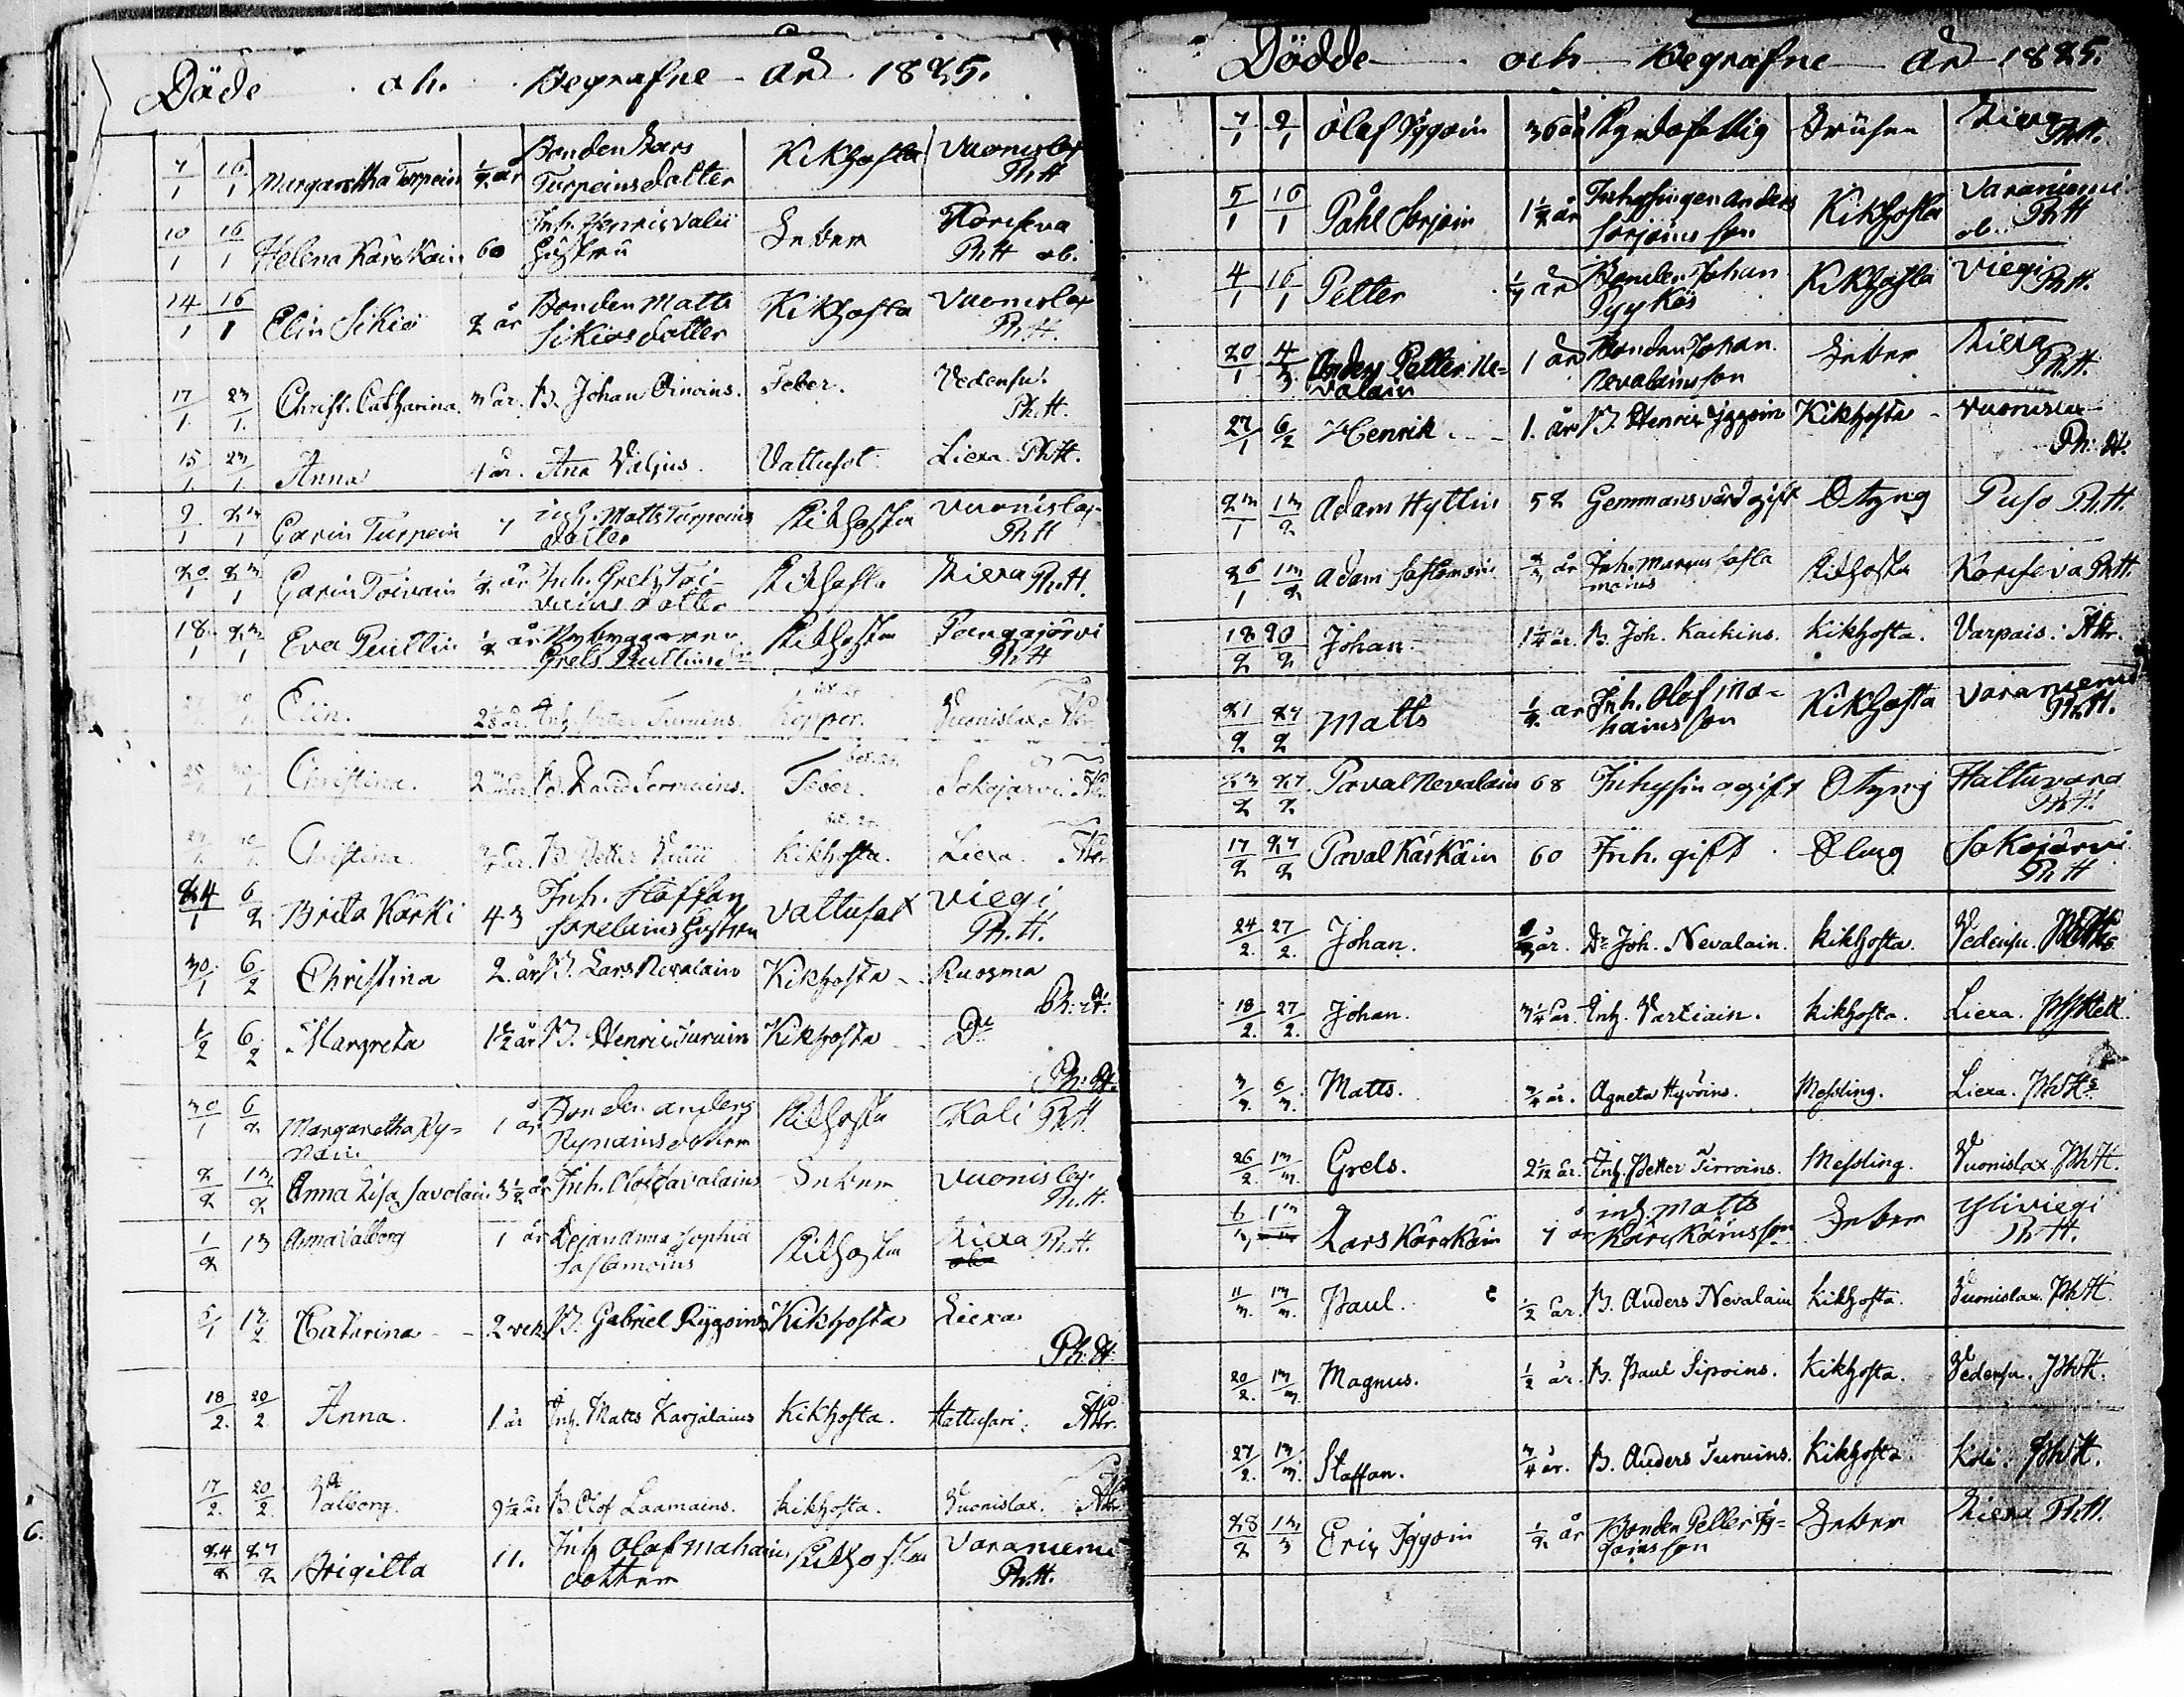 Döde och Begrafne år 1825.
7/1 16/1 Margaretha Turpein 1/2 år Bonden Lars Turpeins datter Kikhosta Vuonislax Ph.H
10/1 16/1 Helena Kärckäin 60 Inh. Henric Valii Hustru Feber Korifeva Ph.H ob.
14/1 16/1 Elin Sikiö 2 år Bonden Matts Sikiös dotter Kikhosta Vuonislax Ph.H.
17/1 23/1 Christ. Catharina 3 år. B. Johan Oinoins. Feber. Vedensu. Ph.H.
15/1 23/1 Anna 4 år. Ana Väljus. Vattusot Liexa. Ph.H.
9/1 23/1 Carin Turpein 7 inh. Matts Turpeins datter Kikhosta Vuonislax Ph.H
20/1 23/1 Carin Toivain 1/2 år Inh. Grels Toivains dotter Kikhosta Liexa Ph.H.
18/1 23/1 Eva Puultin 1/2 år Nybyggaren Grels Kikhosta Pangajärvi Ph.H
Elin. Inh. Petter Turuins. Koppor. Vuonislax
Christina. Feber. Sokojärvi
Christina. B. Petter Valii Kikhosta. Liexa.
24/1 6/2 Brita Kärki 43 Inh. Staffan Hustru Vattusot Viegi Ph.H.
30/1 6/2 Christina 2. år B. Lars Nevalain Kikhosta Ruosma Ph.H.
1/2 6/2 Margreta 1 1/2 år B. Henric Turuin Kikhosta Do Ph.H.
30/1 6/2 Margaretha Rynäin 1 år Bonden Anders Rynäins dotter Kikhosta Koli Ph.H
2/2 13/2 Anna Lisa Savolain 3 1/2 år Inh. Olof Savolains Feber Vuonislax Ph.H.
1/2 13 Anna Valborg 1 år Lejan Anna Sophia Saslamoins Kikhosta Liexa Ph.H.
5/1 13/2 Catarina 2 vek. B. Gabriel Ryggoins Kikhosta Liexa Ph.H
18/2. 20/2 Anna. 1 år Inh. Matts Karjalains Kikhosta. Hattusari.
17/2. 20/2. Valborg. 9 1/2 år B. Olof Laamains. Kikhosta. Vuonislax.
24/2 27/2 Brigitta 11. Inh Olof Mahoins dotter Kikhosta Varaniemi Ph.H.
Dödde och Begrafne År 1825.
7/1 9/1 Olof Yggöin 36 år Liexa Ph.H.
5/1 16/1 Påhl Sorjoin 1 1/2 år Inhysingen Anders Sorjoins son Kikhosta Varaniemi ob. Ph.H
4/1 16/1 Petter 1/4 år Bonden Johan Pyykös Kikhosta Viegi Ph.H.
20/1 4/3 Anders Petter Nevalain 1 år Bonden Johan Nevalains son Feber Liexa Ph.H.
27/1 6/2 Henrik 1. år B. Henric Yggöin Kikhosta Vuonislax Ph.H.
23/1 13/2 Adam Hyttin 52 Gemmansvärd gift Styng Puso Ph.H.
26/1 13/2 Adam Saslamoin 2/3 år Inh. Marcus Saslamoins Kikhosta Korifeva Ph.H.
18/2 20/2 Johan 1 1/4 år. B. Joh. Kaikins. Kikhosta. Varpais.
21/2 27/2 Matts 1/2 år Inh. Olof Mahoins son Kikhosta Varaniemi Ph.H.
23/2 27/2 Påval Nevalain 68 Inhysing gift Styng Hattuvara Ph.H.
17/2 27/2 Påval Kärkäin 60 Inh. gift Slag Sokojärvi Ph.H
24/2. 27/2. Johan. år. Dr. Joh. Nevalain. Kikhosta. Vedensu.
18/2. 27/2. Johan. 3 1/4 år. Inh. Vartiain. Kikhosta. Liexa.
3/3. 6/3. Matts. 3/4 år. Agneta Hyvöins. Messling. Liexa.
26/2. 13/3. Grels. 2 1/12 år. Inh. Petter Tirroins. Messling. Vuonislax Ph.H.
6/3 13 Lars Kärckäin 7 år inh. Matts Kärckäins son Feber Yliviegi Ph.H.
11/3. 13/3. Paul. 1/2 år. B. Anders Nevalain Kikhosta. Vuonislax. Ph.H.
20/2. 13/3. Magnus. 1/2 år. B. Paul Sipoins. Kikhosta. Vedensu. Ph.H.
27/2. 13/3. Staffan. 3/4 år. B. Anders Turuins. Kikhosta. Koli. Ph.H.
28/2 13/3 Eric Yggöin 1/2 år Bonden Petter Yggöins son Feber Liexa Ph.H.
6.